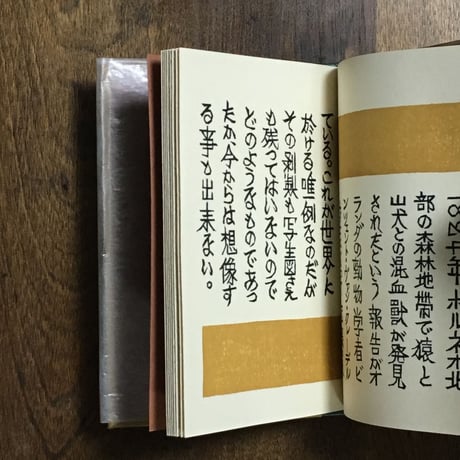 年ボルネオ北
部の森林地帯で猿と
山犬との混血獣が発見
されたという報告がオ
ランダの動物学者ビ
ンセント・ヴァン・グレーデル
ている。これが世界に
於ける唯例なのだが
その剥製も写生図さえ
も残ってはいないので
どのようなものであっ
たか今からは想像す
る事も出来ない。